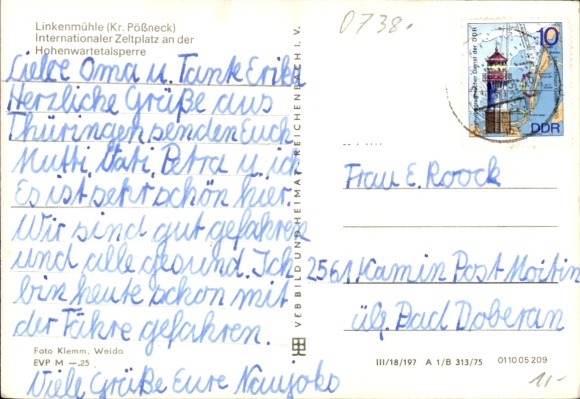 Linkenmühle (Kr. Pößneck)
Internationaler Zeltplatz an der
Hohenwartetalsperre
Liebe Oma u. Tante Erika
Herzliche Grüße aus
Thüringen senden Euch
Mutti, Vati, Petra u. ich.
Es ist sehr schön hier.
Wir sind gut gefahren
und alle gesund. Ich
bin heute schon mit
der Fähre gefahren.
Foto Klemm, Weida
EVP M —.25
Viele Grüße Eure
VEB BILD UND HEIMAT REICHENBACH I. V.
0738.
10
DDR
Frau E. Roock
2561 Kamin Post Moitin
üb. Bad Doberan
III/18/197 A 1/B 313/75 01 10 05 209
1,-